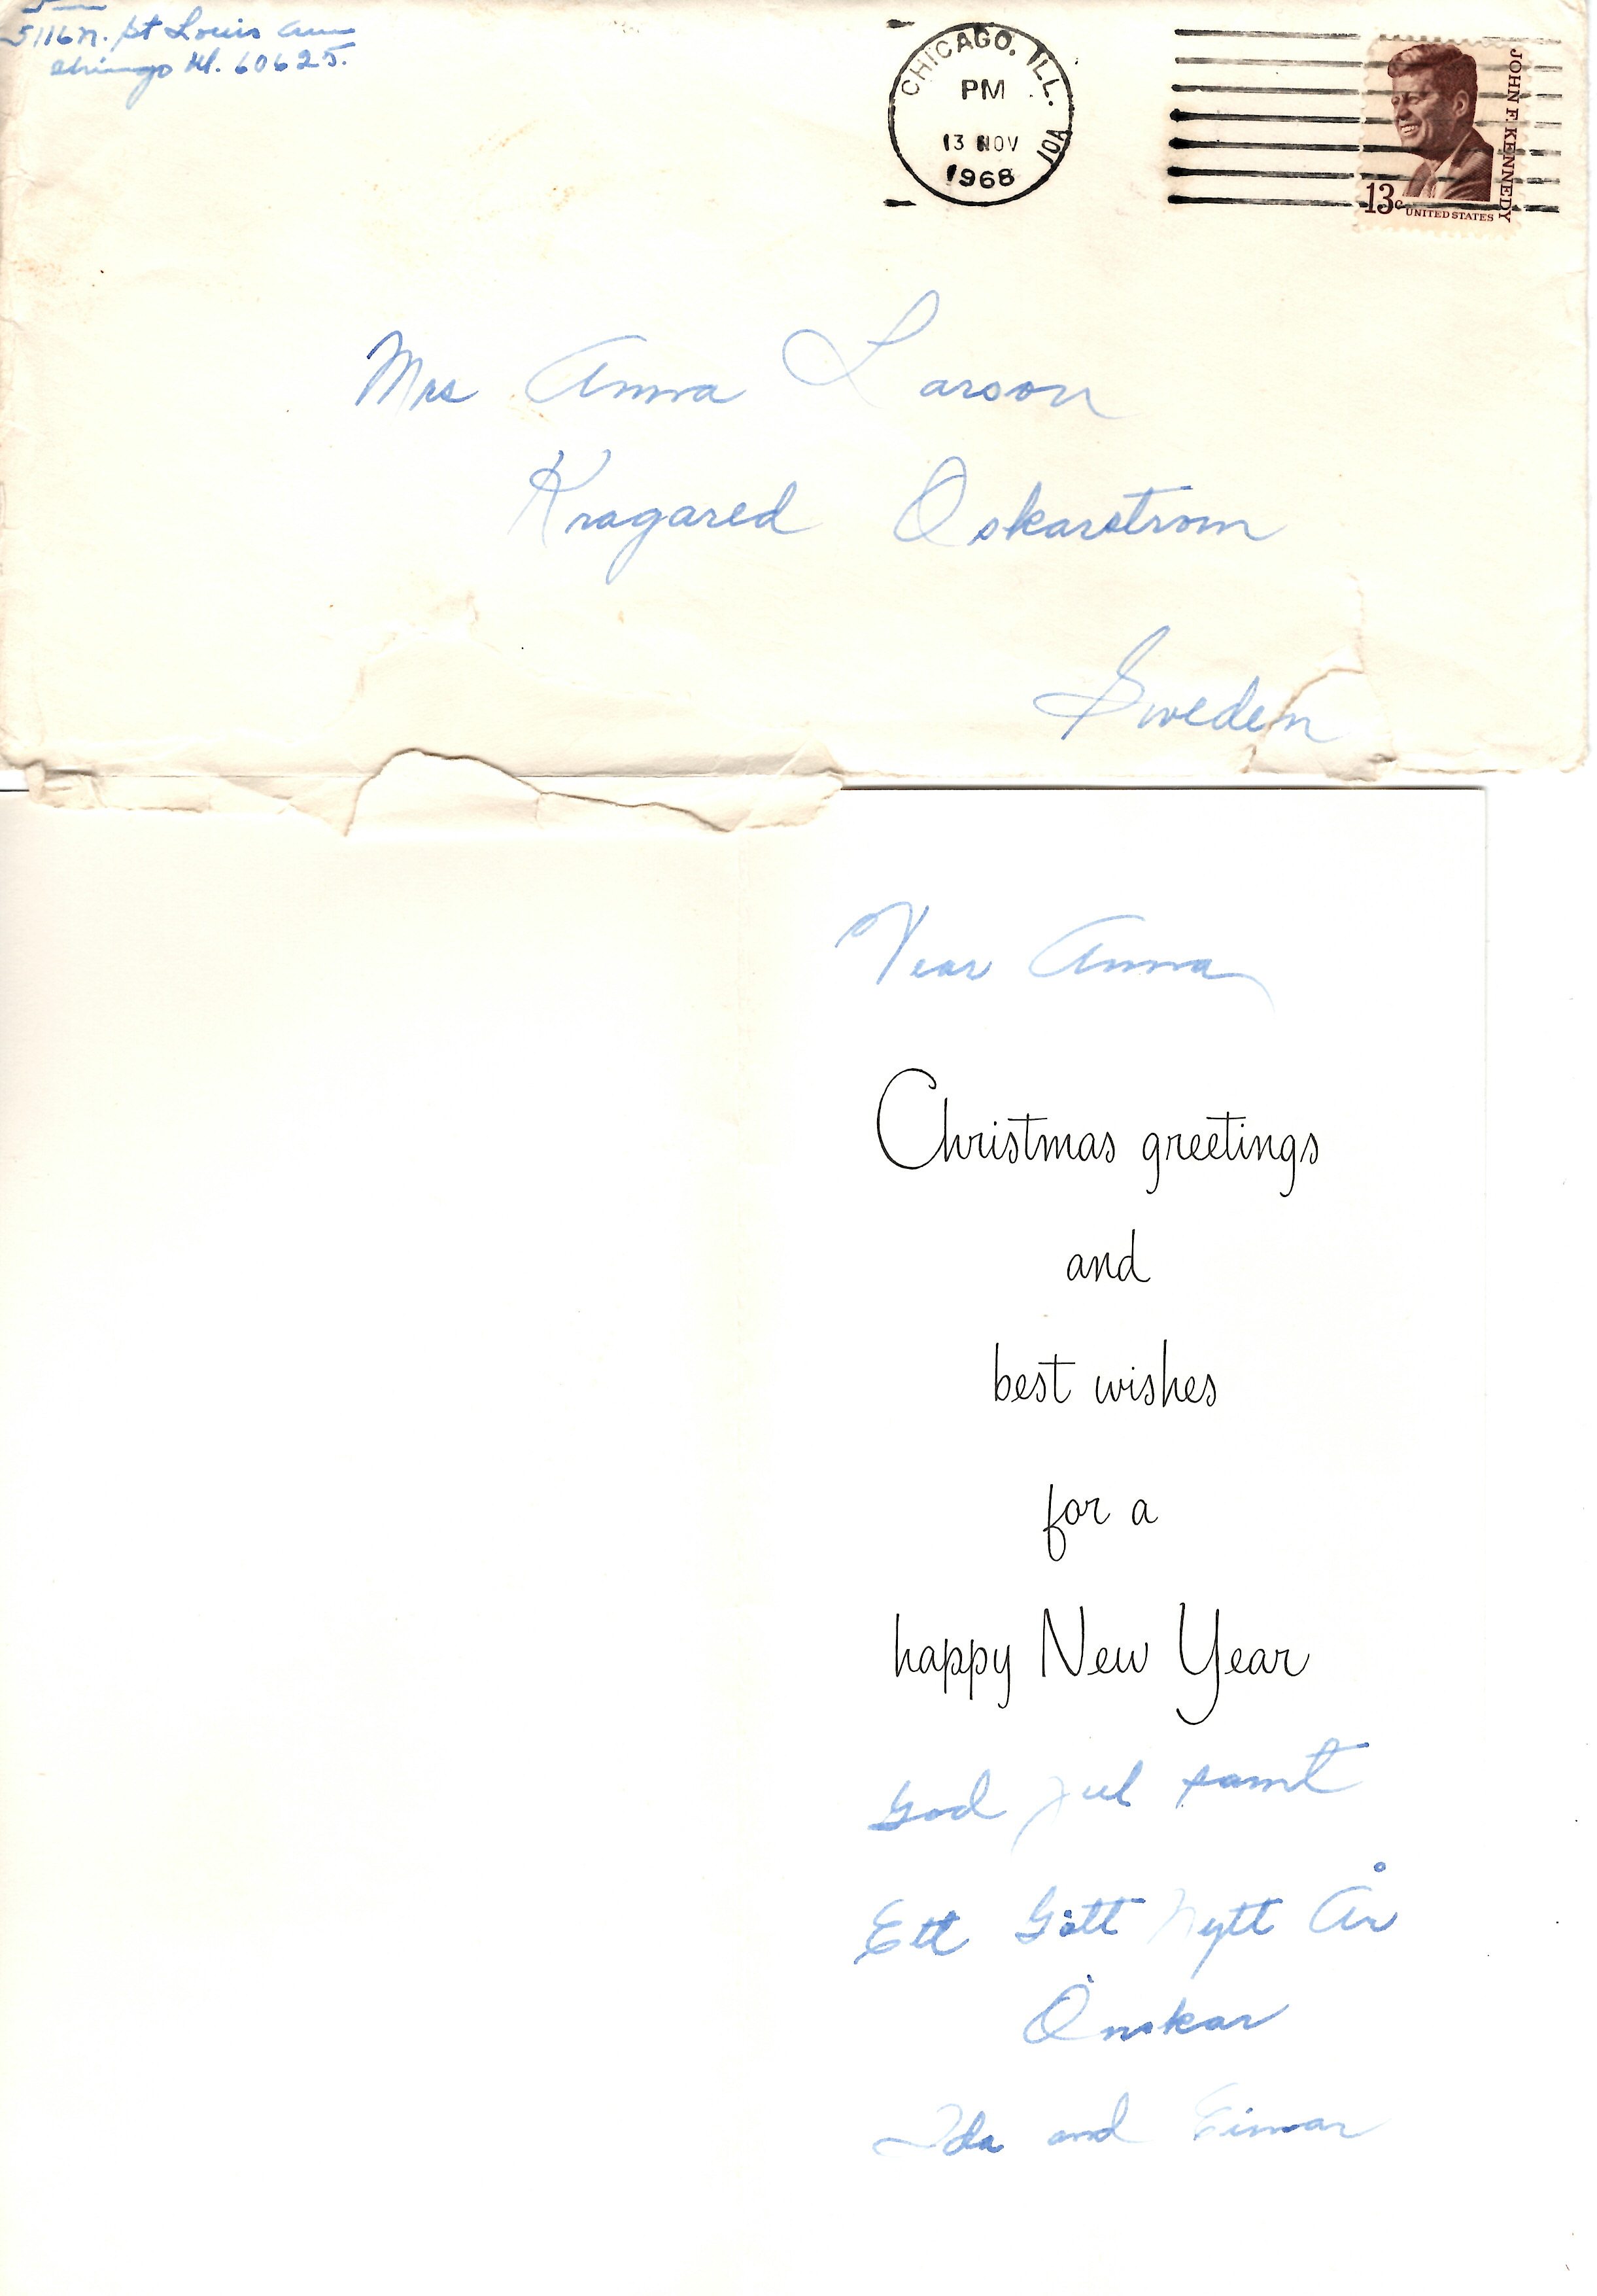 5116 N. St Louis Ave
Chicago Ill. 60625.
CHICAGO, ILL.
PM
13 NOV
1968
10A
JOHN F. KENNEDY
13c UNITED STATES
Mrs Anna Larson
Kragared Oskarstrom
Sweden
Dear Anna
Christmas greetings
and
best wishes
for a
happy New Year
God Jul samt
Ett Gott Nytt År
Önskar
Ida and Einar